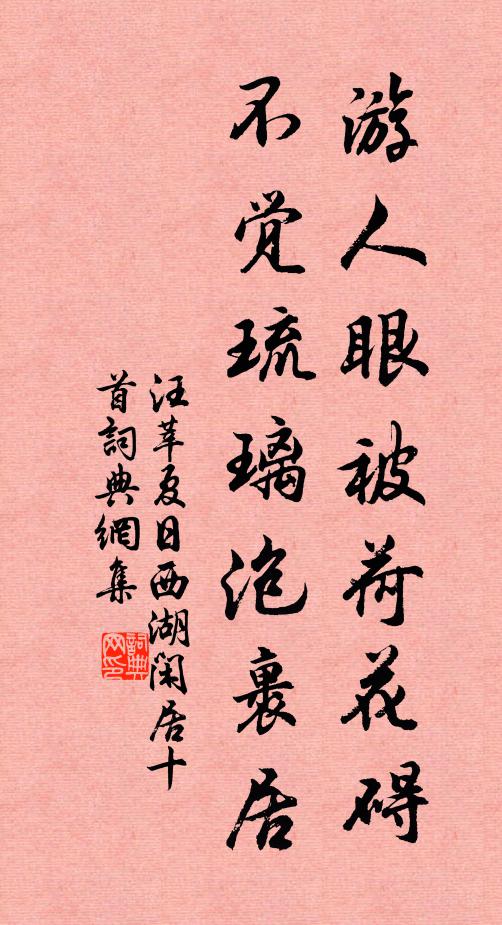 游人眼被荷花碍
不觉琉璃沧裹居
汪莘夏日西湖闲居十
首詞典網集
詞典网印